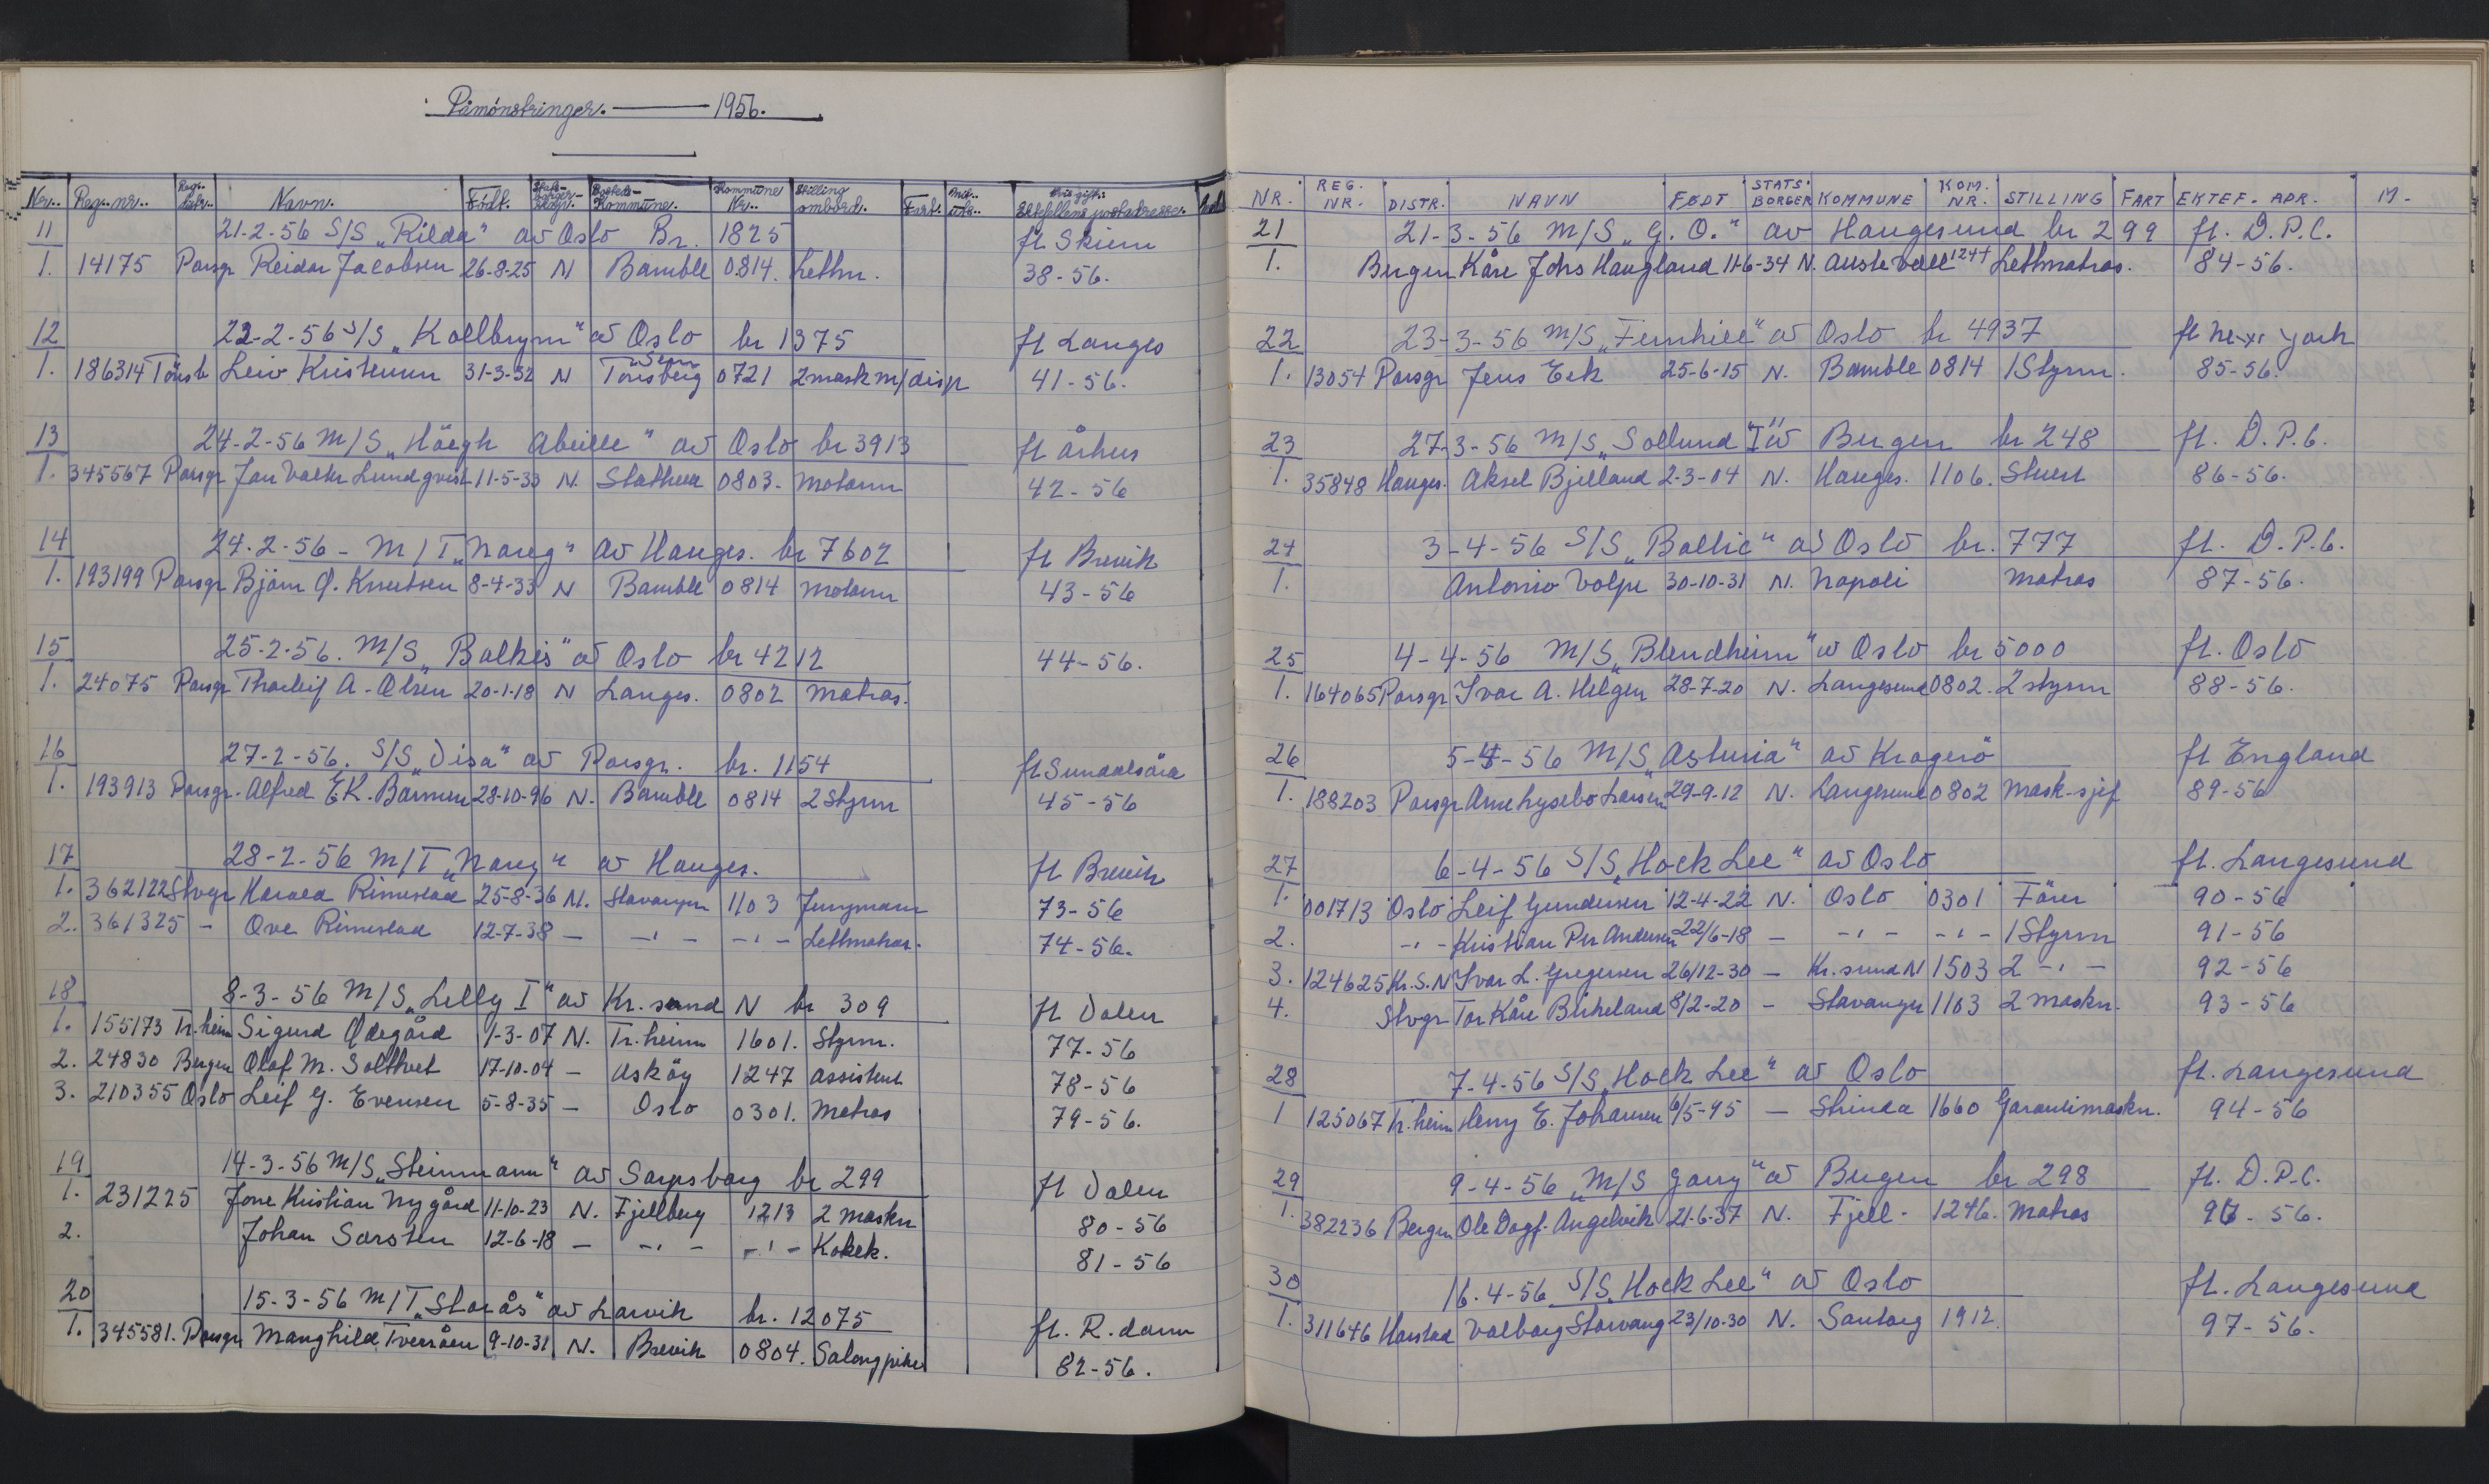 Påmönstringer. — 1956.
Nr. Reg. nr. Regi. distr. Navn. Födt. Stats-borger-skap. Bosteds-Kommune. Kommune Nr. Stilling ombord. Fart. Hvis gift: Ektefellens postadresse.
11 21-2-56 S/S „Rilda" av Oslo Br. 1825 fl Skien
1. 14175 Porsgr Reidar Jacobsen 26-8-25 N Bamble 0814. Lettm. 38-56.
12 22-2-56 S/S „Kollbryn" av Oslo br 1375 fl Langes
Sem
1. 186314 Tönsb Leiv Kristensen 31-3-32 N Tönsberg 0721 2 mask m/disp 41-56.
13 24-2-56 M/S „Höegh Abeille" av Oslo br 3913 fl Århus
1. 345567 Porsgr Jan Valter Lundqvist 11-5-33 N. Stathelle 0803. Motorm 42-56
14 24-2-56 - M/T „Nareg" av Hauges. br 7602 fl Brevik
1. 193199 Porsgr Björn Q. Knutsen 8-4-33 N Bamble 0814 Motorm 43-56
15 25-2-56. M/S „Balkis" av Oslo br 4212 44-56.
1. 24075 Porsgr Thorleif A. Olsen 20-1-18 N Langes. 0802 Matros.
16 27-2-56. S/S „Disa" av Porsgr. br. 1154 fl Sunndalsöra
1. 193913 Porsgr. Alfred E.K. Barmen 28-10-96 N. Bamble 0814 2 Styrm 45-56
17 28-2-56 M/T „Nareg" av Hauges. fl Brevik
1. 362122 Stvgr Harald Rimestad 25-8-36 N. Stavanger 1103 Jungmann 73-56
2. 361325 - Ove Rimestad 12-7-38 - -"- -"- Lettmatros. 74-56.
18 8-3-56 M/S „Lelly I" av Kr.sund N br 309 fl Dalen
1. 155173 Tr.heim Sigurd Ödegård 1-3-07 N. Tr.heim 1601. Styrm. 77-56
2. 24830 Bergen Olaf M. Solthvet 17-10-04 - Asköy 1247 assistent 78-56
3. 210355 Oslo Leif G. Evensen 5-8-35 - Oslo 0301. Matros 79-56.
19 14-3-56 M/S „Steinmann" av Sarpsborg br 299 fl Dalen
1. 231225 Jone Kristian Nygård 11-10-23 N. Fjellberg 1213 2 maskn 80-56
2. Johan Sørsten 12-6-18 - -"- -"- Kokek. 81-56
20 15-3-56 M/T „Storås" av Larvik br. 12075 fl. R.dam
1. 345581. Porsgr Manghild Tveråen 9-10-31 N. Brevik 0804. Salongpike 82-56.
NR. REG. NR. DISTR. NAVN FØDT STATS-BORGER KOMMUNE KOM. NR. STILLING FART EKTEF. ADR. M.
21 21-3-56 M/S „G.O." av Haugesund br 299 fl. D.P.C.
1. Bergen Kåre Johs Haugland 11-6-34 N. Austevoll 1244 Lettmatros. 84-56.
22 23-3-56 M/S „Fernhill" av Oslo br 4937 fl New York
1. 13054 Porsgr Jens Eek 25-6-15 N. Bamble 0814 1 Styrm. 85-56.
23 27-3-56 M/S „Sollund II" av Bergen br 248 fl. D.P.C.
1. 35848 Hauges. Aksel Bjelland 2-3-04 N. Hauges. 1106. Stuert 86-56.
24 3-4-56 S/S „Baltic" av Oslo br. 777 fl. D.P.C.
1. Antonio Volpe 30-10-31 N. Napoli Matros 87-56.
25 4-4-56 M/S „Blendheim" av Oslo br 5000 fl. Oslo
1. 164065 Porsgr Ivar A. Helgen 28-7-20 N. Langesund 0802. 2 styrm 88-56.
26 5-4-56 M/S „Asturia" av Kragerö fl England
1. 188203 Porsgr Arne Lysebo Larsen 29-9-12 N. Langesund 0802 Mask-sjef 89-56
27 6-4-56 S/S „Hoek Lee" av Oslo fl. Langesund
1. 001713 Oslo Leif Gundersen 12-4-22 N. Oslo 0301 Förer 90-56
2. -"- Kristian Per Andersen 22/6-18 - -"- -"- 1 Styrm 91-56
3. 124625 Kr.S.N Ivar L. Gregersen 26/12-30 - Kr.sund N 1503 2 -"- 92-56
4. Stvgr Tor Kåre Birkeland 8/2-20 - Stavanger 1103 2 maskn. 93-56
28 7-4-56 S/S „Hoek Lee" av Oslo fl. Langesund
1 125067 Tr.heim Henry E. Johansen 6/5-95 - Strinda 1660 Garantimaskn. 94-56
29 9-4-56 „M/S Garry" av Bergen br 298 fl. D.P.C.
1. 382236 Bergen Ole Dagf. Angelvik 21-6-37 N. Fjell. 1246. Matros 96-56.
30 16-4-56 S/S „Hoek Lee" av Oslo fl. Langesund
1. 311646 Harstad Valborg Storvang 23/10-30 N. Santorg 1912. 97-56.